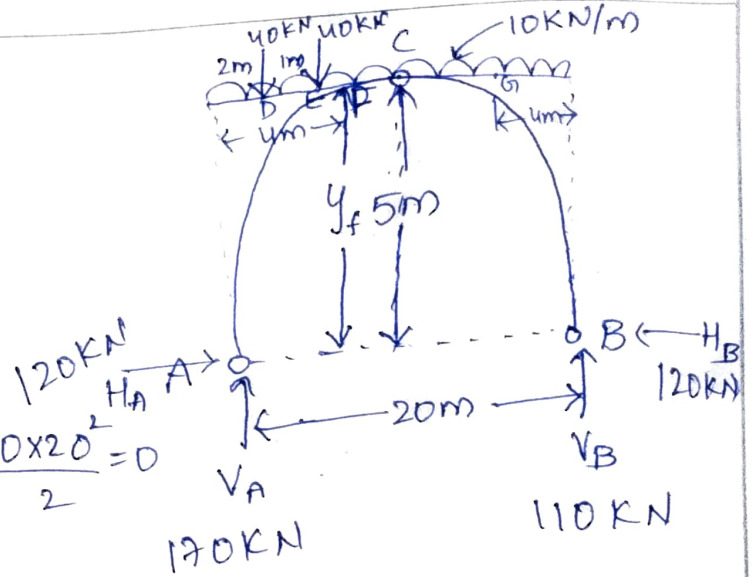 40KN 40KN C 10KN/m
2m 1m
D E F G
4m 4m
yf 5m
120KN
HA A B HB
120KN
0x20²/2 =0
20m
VA VB
170KN 110KN